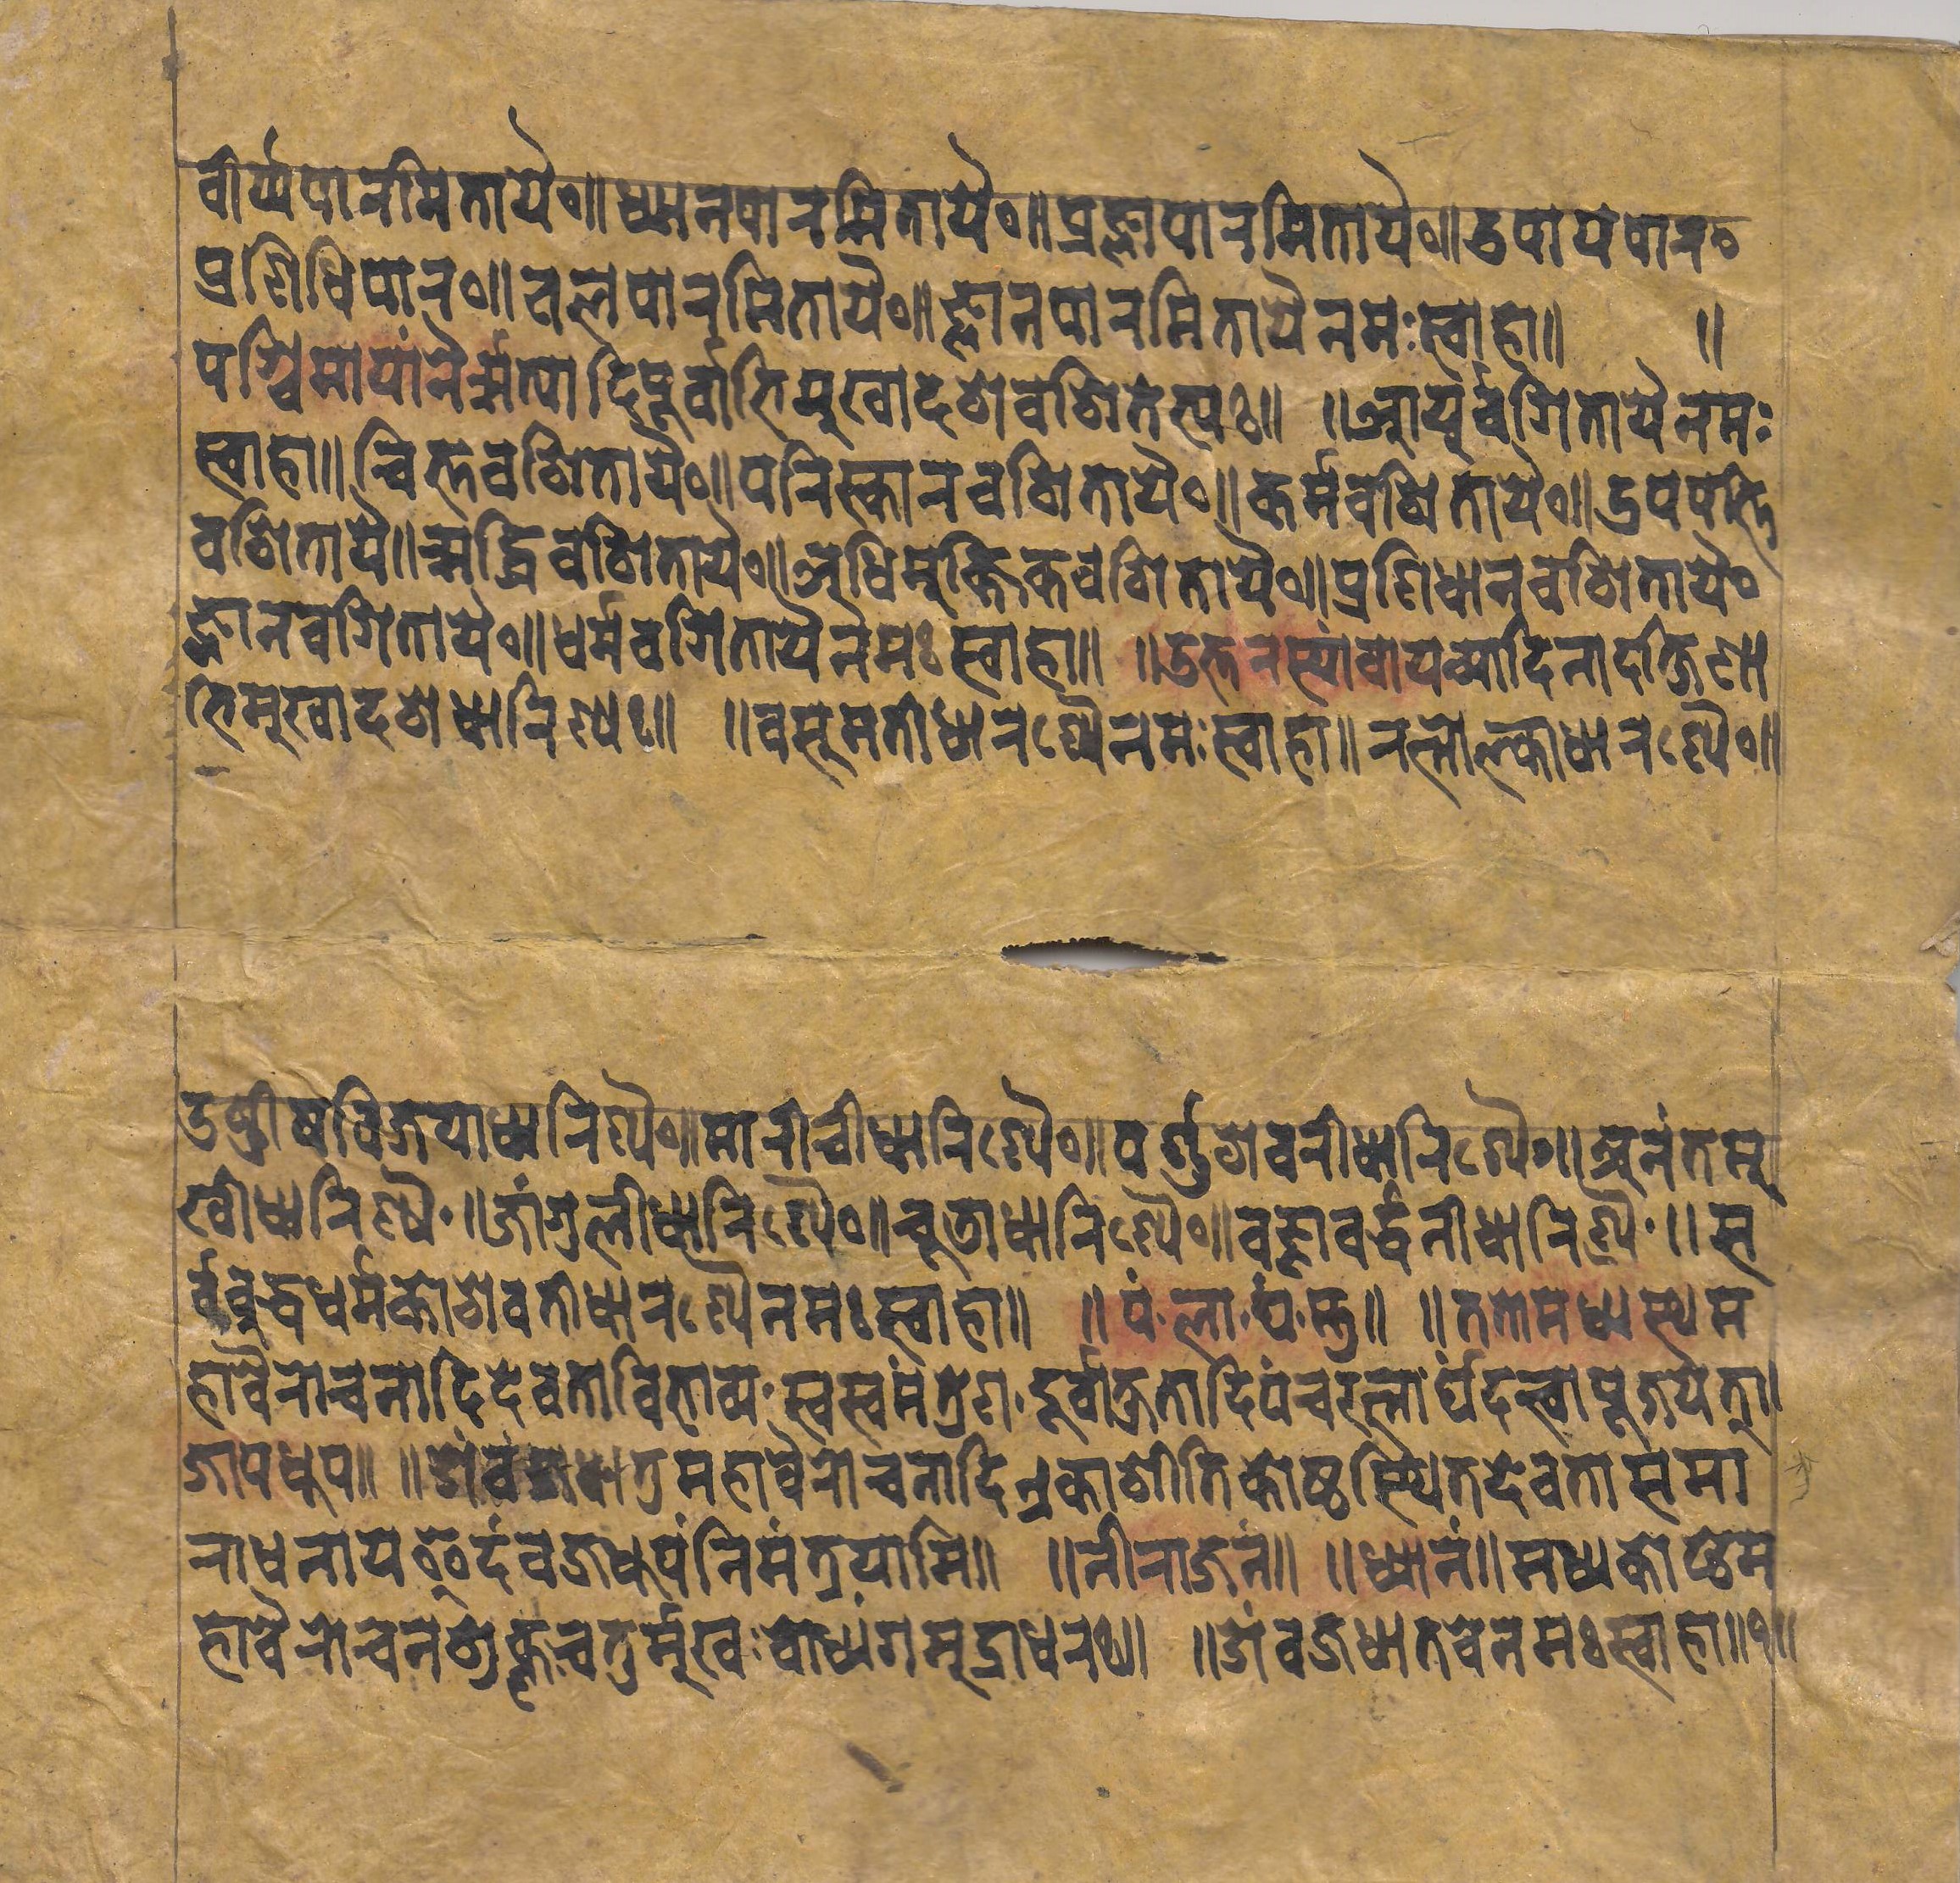 वीर्य्यपारमितायै०॥ध्यानपारमितायै०॥प्रज्ञापारमितायै०॥उपायपार०
प्रणिधिपार०॥बलपारमितायै०॥ज्ञानपारमितायै नमः स्वाहा॥ ॥
पश्चिमायां नैर्ऋत्यादिपूर्वाभिमुखा दश वशितेभ्यः॥ ॥आयुर्वशितायै नमः
स्वाहा॥चित्तवशितायै०॥परिस्कारवशितायै०॥कर्मवशितायै०॥उपपत्ति
वशितायै॥ऋद्धिवशितायै०॥अधिमुक्तिकवशितायै०॥प्रणिधानवशितायै०
ज्ञानवशितायै०॥धर्मवशितायै नमः स्वाहा॥ ॥उत्तरस्यां वायव्यादिनादक्षिणा
भिमुखा दश धारिण्यः॥ ॥वसुमतीधारण्यै नमः स्वाहा॥रत्नोल्काधारण्यै०॥
उष्णीषविजयाधारिण्यै०॥मारीचीधारिण्यै०॥पर्णशवरीधारिण्यै०॥अनंतमु
खीधारिण्यै०॥जांगुलीधारिण्यै०॥चुंताधारिण्यै०॥प्रज्ञावर्द्धनीधारिण्यै०॥स
र्वबुद्धधर्मकोशवतीधारण्यै नमः स्वाहा॥ ॥पं·ला·घं·स्तु॥ ॥ततो मध्यस्थम
हावैरोचनादिदेवता विभाव्य·स्वस्वमंत्रेण·दूर्वाक्षतादिपंचरत्नार्घं दत्वा पूजयेत्॥
जापधूप॥ ॥ॐ वज्रधातुमहावैरोचनादि एकाशीतिकोष्ठस्थितदेवतासमा
राधनाय इदं वज्रधूपं निमंत्रयामि॥ ॥नीराजनं॥ ॥ध्यानं॥मध्यकोष्ठे म
हावैरोचनशुक्लचतुर्मुखः बोध्यंगमुद्राधरः॥ ॥ॐ वज्रधातवे नमः स्वाहा॥१॥